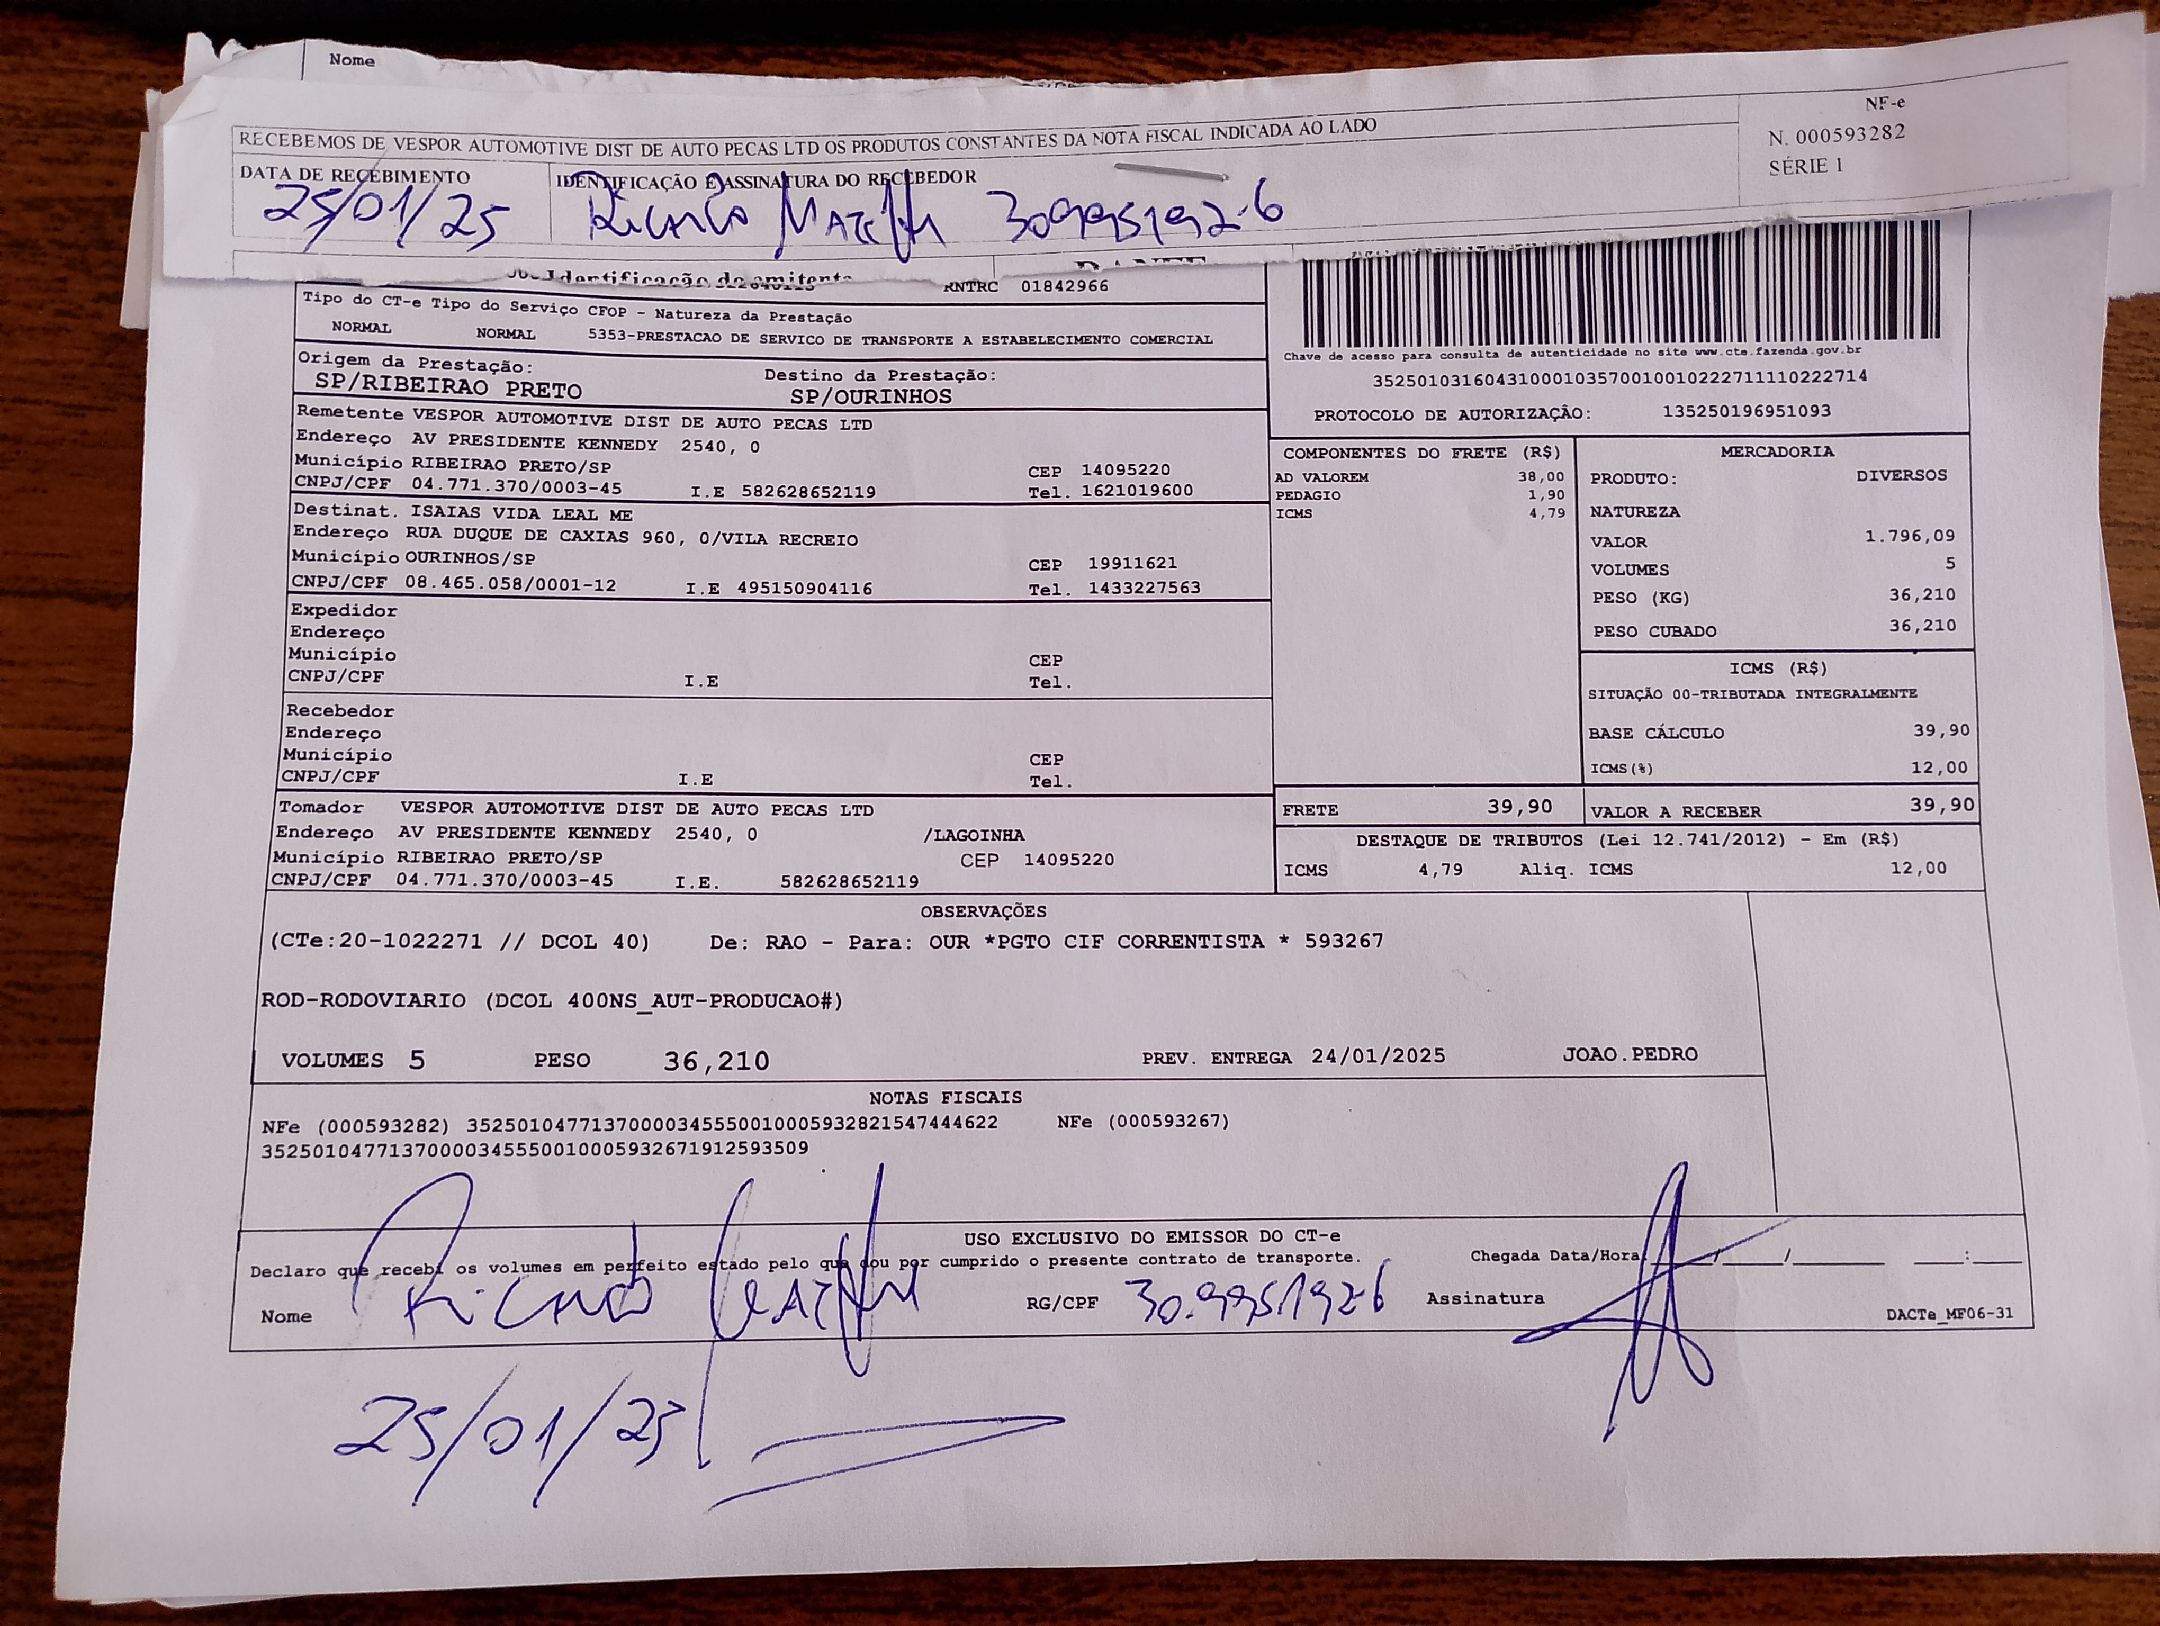 Nome
RECEBEMOS DE VESPOR AUTOMOTIVE DIST DE AUTO PECAS LTD OS PRODUTOS CONSTANTES DA NOTA FISCAL INDICADA AO LADO
NF-e
N. 000593282
SÉRIE 1
DATA DE RECEBIMENTO
IDENTIFICAÇÃO E ASSINATURA DO RECEBEDOR
25/01/25 Ricardo 309951926
Identificação do emitente
RNTRC 01842966
Tipo do CT-e Tipo do Serviço CFOP - Natureza da Prestação
NORMAL NORMAL 5353-PRESTACAO DE SERVICO DE TRANSPORTE A ESTABELECIMENTO COMERCIAL
Origem da Prestação:
SP/RIBEIRAO PRETO
Destino da Prestação:
SP/OURINHOS
Remetente VESPOR AUTOMOTIVE DIST DE AUTO PECAS LTD
Endereço AV PRESIDENTE KENNEDY 2540, 0
Município RIBEIRAO PRETO/SP CEP 14095220
CNPJ/CPF 04.771.370/0003-45 I.E 582628652119 Tel. 1621019600
Destinat. ISAIAS VIDA LEAL ME
Endereço RUA DUQUE DE CAXIAS 960, 0/VILA RECREIO
Município OURINHOS/SP CEP 19911621
CNPJ/CPF 08.465.058/0001-12 I.E 495150904116 Tel. 1433227563
Expedidor
Endereço
Município CEP
CNPJ/CPF I.E Tel.
Recebedor
Endereço
Município CEP
CNPJ/CPF I.E Tel.
Tomador VESPOR AUTOMOTIVE DIST DE AUTO PECAS LTD
Endereço AV PRESIDENTE KENNEDY 2540, 0 /LAGOINHA
Município RIBEIRAO PRETO/SP CEP 14095220
CNPJ/CPF 04.771.370/0003-45 I.E. 582628652119
Chave de acesso para consulta de autenticidade no site www.cte.fazenda.gov.br
35250103160431000103570010010222711110222714
PROTOCOLO DE AUTORIZAÇÃO: 135250196951093
COMPONENTES DO FRETE (R$)
AD VALOREM 38,00
PEDAGIO 1,90
ICMS 4,79
MERCADORIA
PRODUTO: DIVERSOS
NATUREZA
VALOR 1.796,09
VOLUMES 5
PESO (KG) 36,210
PESO CUBADO 36,210
ICMS (R$)
SITUAÇÃO 00-TRIBUTADA INTEGRALMENTE
BASE CÁLCULO 39,90
ICMS(%) 12,00
FRETE 39,90
VALOR A RECEBER 39,90
DESTAQUE DE TRIBUTOS (Lei 12.741/2012) - Em (R$)
ICMS 4,79 Aliq. ICMS 12,00
OBSERVAÇÕES
(CTe:20-1022271 // DCOL 40) De: RAO - Para: OUR *PGTO CIF CORRENTISTA * 593267
ROD-RODOVIARIO (DCOL 400NS_AUT-PRODUCAO#)
VOLUMES 5 PESO 36,210 PREV. ENTREGA 24/01/2025 JOAO.PEDRO
NOTAS FISCAIS
NFe (000593282) 35250104771370000345550010005932821547444622 NFe (000593267)
35250104771370000345550010005932671912593509
USO EXCLUSIVO DO EMISSOR DO CT-e
Declaro que recebi os volumes em perfeito estado pelo que dou por cumprido o presente contrato de transporte.
Chegada Data/Hora: ____/____/______ ___:___
Nome Ricardo RG/CPF 30.9951926 Assinatura
DACTe_MF06-31
25/01/25